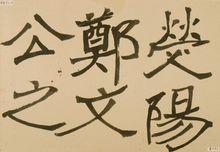 熒陽
鄭文
公之